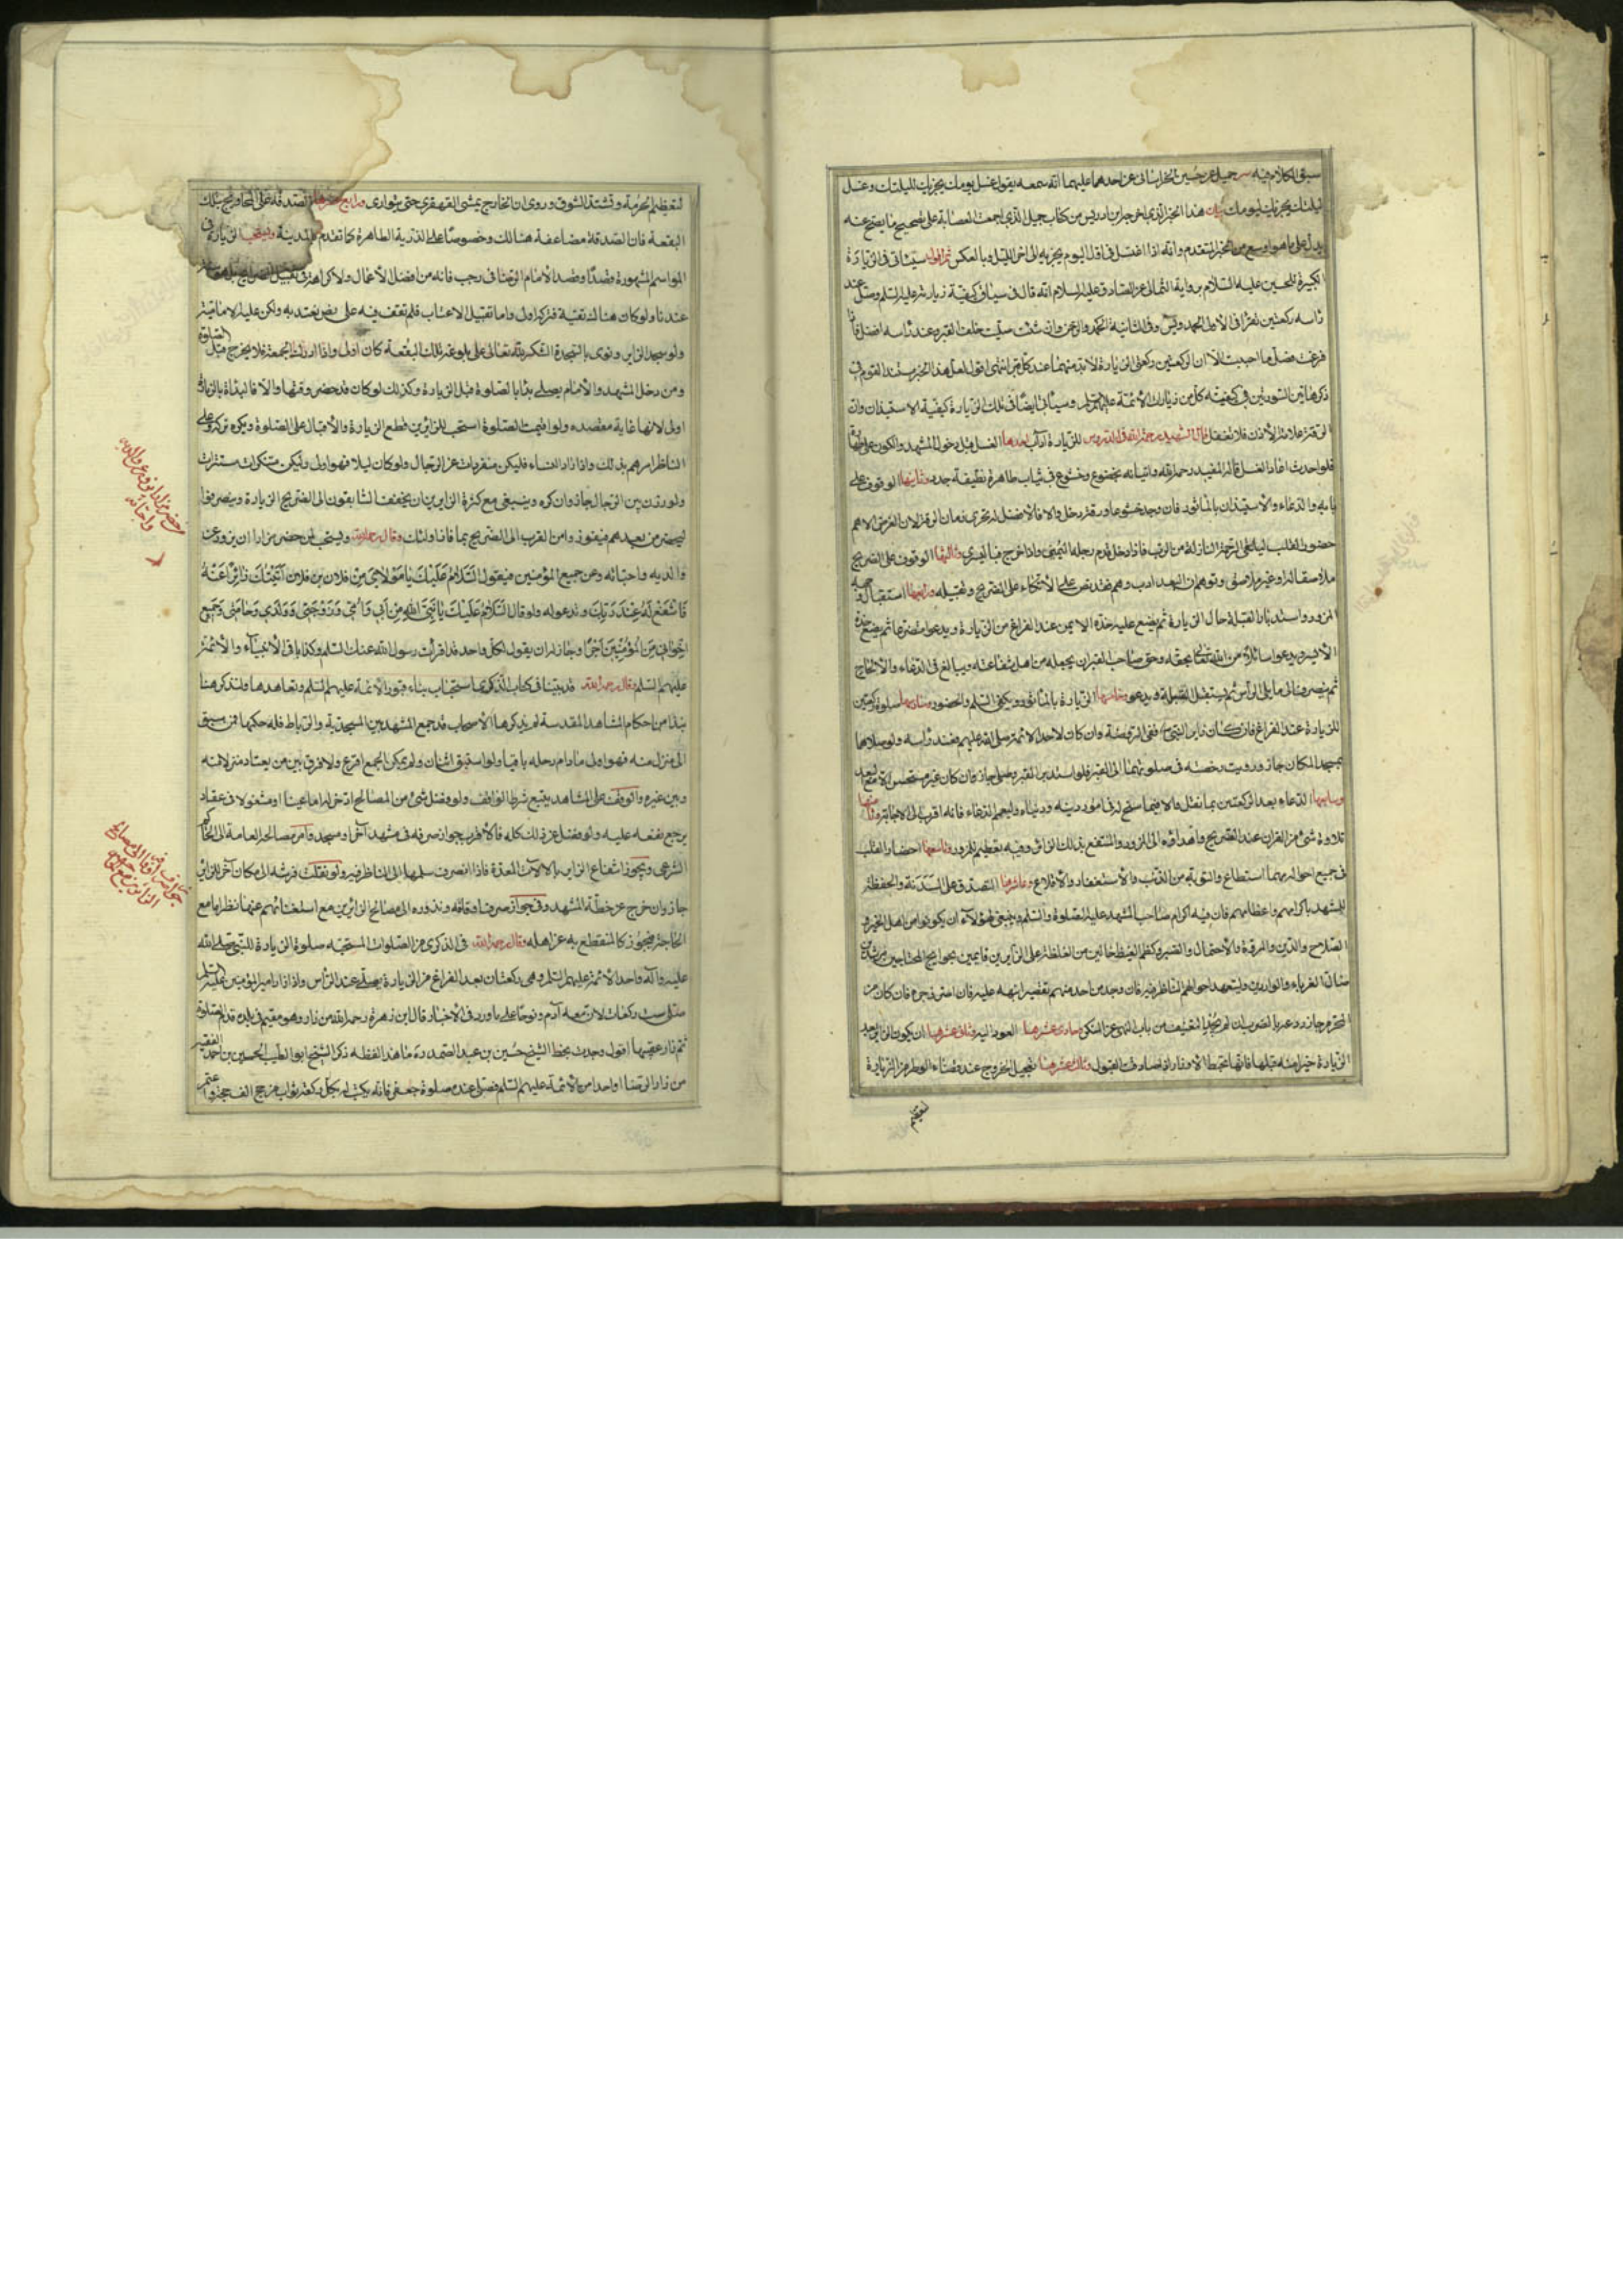 سبق الكلام فيه جميل عن حسين الخراساني عن احدهما عليهما انه سمعه يقول غسل يومك يجزيك لليلتك وغسل
ليلتك يجزيك ليومك بيان هذا الخبر الذي اخرجه ابن ادريس من كتاب جميل الذي اجمعت العصابة على تصحيح ما يصح عنه
يدل على ما هو اوسع من الخبر المتقدم وانه اذا اغتسل في اول اليوم يجزيه الى اخر الليل وبالعكس ثم اقول سيئاتي في الزيارة
الكبيرة للحسين عليه السلام برواية الثمالي عن الصادق عليه السلام انه قال في سياق كيفية زيارته عليه السلم وصل عند
رأسه ركعتين تقرأ في الاولى الحمد ويس وفي الثانية الحمد والرحمن وان شئت صليت خلف القبر وعند رأسه افضل فاذا
فرغت فصل ما احببت الا ان الركعتين ركعتي الزيارة لا بد منهما عند كل قبر انتهى اقول لعل هذا الخبر مستند القوم في
ذكر هاتين السورتين في كيفية كل من زيارات الائمة عليهم السلم وسيأتي ايضا في تلك الزيارة كيفية الاستيذان وان
الرقة علامة الاذن فلا تغفل قال الشهيد رحمه الله في الدروس للزيارة آداب احدها الغسل قبل دخول المشهد والكون على طهارة
فلو احدث اعاد الغسل قاله المفيد رحمه الله واتيانه بخضوع وخشوع في ثياب طاهرة نظيفة جدد وثانيها الوقوف على
بابه والدعاء والاستيذان بالمأثور فان وجد خشوعا ورقة دخل والا فالافضل له تحري زمان الرقة لان الغرض الاهم
حضور القلب ليلقى الرحمة النازلة من الرب فاذا دخل قدم رجله اليمنى واذا خرج فباليسرى وثالثها الوقوف على الضريح
ملاصقا له او غير ملاصق وتوهم ان البعد ادب وهم فقد نص على الاتكاء على الضريح وتقبيله ورابعها استقبال وجه
المزور واستدبار القبلة حال الزيارة ثم يضع عليه خده الايمن عند الفراغ من الزيارة ويدعو متضرعا ثم يضع خده
الايسر ويدعو سائلا من الله تعالى بحقه وحق صاحب القبر ان يجعله من اهل شفاعته ويبالغ في الدعاء والالحاح
ثم ينصرف الى ما يلي الرأس ثم يستقبل القبلة ويدعو وخامسها الزيارة بالمأثور ويكفي السلم والحضور وسادسها صلوة ركعتين
للزيارة عند الفراغ فان كان زائر النبي ص ففي الروضة وان كان لاحد الائمة صلى الله عليهم فعند رأسه ولو صلاهما
بمسجد المكان جاز ورويت رخصة في صلوتهما الى القبر فلو استدبر القبر وصلى جاز وان كان غير مستحسن الا مع البعد
وسابعها الدعاء بعد الركعتين بما نقل والا فيما سنح له في امور دينه ودنياه وليعمم الدعاء فانه اقرب الى الاجابة وثامنها
تلاوة شيء من القران عند الضريح واهداؤه الى المزور والمنتفع بذلك الزائر وفيه تعظيم للمزور وتاسعها احضار القلب
في جميع احواله مهما استطاع والتوبة من الذنب والاستغفار والاقلاع وعاشرها التصدق على السدنة والحفظة
للمشهد باكرامهم واعظامهم فان فيه اكرام صاحب المشهد عليه الصلوة والسلم وينبغي لهؤلاء ان يكونوا من اهل الخير و
الصلاح والدين والمروة والاحتمال والصبر وكظم الغيظ خالين من الغلظة على الزائرين قائمين بحوايج المحتاجين مرشدين
ضال الغرباء والواردين وليتعهد احوالهم الناظر فيه فان وجد من احد منهم تقصيرا نبهه عليه فان اصر زجره فان كان من
المحرم جاز ردعه بالضرب ان لم يجد التعنيف من باب النهي عن المنكر وحادي عشرها العود اليه وثاني عشرها ان يكون الزائر بعد
الزيارة خيرا منه قبلها فانها تحط الاوزار اذا صادفت القبول وثالث عشرها تعجيل الخروج عند قضاء الوطر من الزيارة
لتعظيم
لتعظيم الحرمة وتشتد الشوق وروي ان الخارج يمشي القهقرى حتى يتوارى ورابع عشرها الصدقة على المحاويج بتلك
البقعة فان الصدقة مضاعفة هنالك وخصوصا على الذرية الطاهرة كما تقدم بالمدينة ويستحب الزيارة في
المواسم المشهورة قصدا وقصد الامام الرضا في رجب فانه من افضل الاعمال ولا كراهة في تقبيل الضرايح بل هو سنة
عندنا ولو كان هناك تقية فتركه اولى واما تقبيل الاعتاب فلم نقف فيه على نص نعتد به ولكن عليه الامامية
ولو سجد الزاير ونوى بالسجدة الشكر لله تعالى على بلوغه تلك البقعة كان اولى واذا ادرك الجمعة فلا يخرج قبل الصلوة
ومن دخل المشهد والامام يصلي بدأ بالصلوة قبل الزيارة وكذلك لو كان قد حضر وقتها والا فالبدأة بالزيارة
اولى لانها غاية مقصده ولو اقيمت الصلوة استحب للزائرين قطع الزيارة والاقبال على الصلوة ويكره تركه وعلى
الناظر امرهم بذلك واذا زار النساء فليكن منفردات عن الرجال ولو كان ليلا فهو اولى وليكن متنكرات مستترات
ولو زرن بين الرجال جاز وان كره وينبغي مع كثرة الزايرين ان يخفف السابقون الى الضريح الزيارة وينصرفوا
ليحضر من بعدهم فيفوزوا من القرب الى الضريح بما فاز اولئك وقال رحمه الله ويستحب لمن حضر مزارا ان يزور عن
والديه واحبائه وعن جميع المؤمنين فيقول السلام عليك يا مولاي من فلان بن فلان اتيتك زائرا عنه
فاشفع له عند ربك وتدعو له ولو قال السلام عليك يا نبي الله من ابي وامي وزوجتي وولدي وحامتي وجميع
اخواني من المؤمنين اجزأ وجاز له ان يقول لكل واحد قد اقرأت رسول الله عنك السلم وكذا باقي الانبياء والائمة
عليهم السلم وقال رحمه الله قد بينا في كتاب الذكرى استحباب بناء قبور الائمة عليهم السلم وتعاهدها ولنذكر هنا
نبذا من احكام المشاهد المقدسة لم يذكرها الاصحاب قد جمع المشهد بين المسجدية والرباط فله حكمهما فمن سبق
الى منزل منه فهو اولى ما دام رحله باقيا ولو استبق اثنان ولم يمكن الجمع اقرع ولا فرق بين من يعتاد منزلا منه
وبين غيره والوقف على المشاهد يتبع شرط الواقف ولو فضل شيء من المصالح ادخر له اما عينا او مشغولا في عقار
يرجع نفعه عليه ولو فضل عن ذلك كله فالاقرب جواز صرفه في مشهد آخر او مسجد وامر مصالحه العامة الى الحاكم
الشرعي ويجوز انتفاع الزاير بالالات المعدة فاذا انصرف سلمها الى الناظر فيه ولو نقلت فرشه الى مكان آخر للزائر
جاز وان خرج عن خطة المشهد وفي جواز صرف اوقافه ونذوره الى مصالح الزائرين مع استغنائهم عنها نظر اما مع
الحاجة فيجوز كالمنقطع به عن اهله وقال رحمه الله في الذكرى من الصلوات المستحبة صلوة الزيارة للنبي صلى الله
عليه وآله واحد الائمة عليهم السلم وهي ركعتان بعد الفراغ من الزيارة يصلي عند الرأس واذا زار امير المؤمنين عليه السلم
صلى ست ركعات لان معه آدم ونوحا على ما ورد في الاخبار قال ابن زهرة رحمه الله من زار وهو مقيم في بلده قدم الصلوة
ثم زار عقيبها اقول وجدت بخط الشيخ حسين بن عبد الصمد ره ما هذا لفظه ذكر الشيخ ابو الطيب الحسين بن احمد الفقيه
من زار الرضا او واحدا من الائمة عليهم السلم فصلى عنده صلوة جعفر فانه يكتب له بكل ركعة ثواب من حج الف حجة واعتمر
حضر مزارا ان يزور عن والديه
واحبائه
جواز صرف اوقافه الى مصالح
الزائرين مع